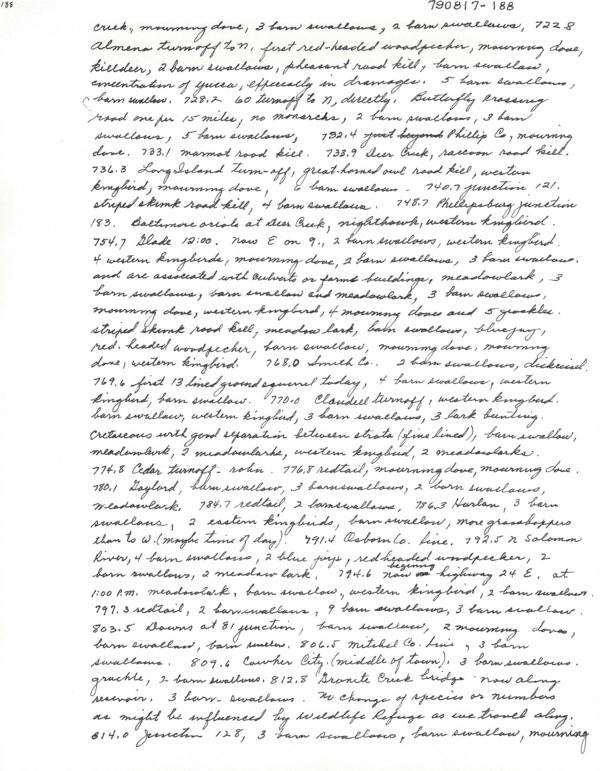 188
790817-188
creek, mourning dove, 3 barn swallows, 2 barn swallows, 722.8
Almena turnoff to N, first red-headed woodpecker, mourning dove,
killdeer, 2 barn swallows, pheasant road kill, barn swallow,
concentration of yucca, especially in drainages. 5 barn swallows,
barn swallow. 728.2 60 turnoff to N, directly. Butterfly crossing
road one per 15 miles, no monarchs, 2 barn swallows, 3 barn
swallows, 5 barn swallows, 732.4 just beyond Phillip Co, mourning
dove. 733.1 marmot road kill. 733.9 Deer Creek, raccoon road kill.
736.3 Long Island turn-off, great-horned owl road kill, western
kingbird, mourning dove, 6 barn swallows. 740.7 junction 121.
striped skunk road kill, 4 barn swallows. 748.7 Phillipsburg junction
183. Baltimore oriole at Deer Creek, nighthawk, western kingbird.
754.7 Glade 12:00. Now E on 9., 2 barn swallows, western kingbird.
4 western kingbirds, mourning dove, 2 barn swallows, 3 barn swallows.
and are associated with culverts or farms buildings, meadowlark, 3
barn swallows, barn swallow and meadowlark, 3 barn swallows,
mourning dove, western kingbird, 4 mourning doves and 5 grackles.
striped skunk road kill, meadow lark, barn swallow, bluejay,
red-headed woodpecker, barn swallow, mourning dove, mourning
dove, western kingbird. 768.0 Smith Co. 2 barn swallows, dickcissel.
769.6 first 13 lined ground squirrel today, 4 barn swallows, western
kingbird, barn swallow. 770.0 Claudell turnoff, western kingbird.
barn swallow, western kingbird, 3 barn swallows, 3 lark bunting.
Cretaceous with good separation between strata (fine lined), barn swallow,
meadowlark, 2 meadowlarks, western kingbird, 2 meadowlarks.
774.8 Cedar turnoff - robin. 776.8 redtail, mourning dove, mourning dove.
780.1 Gaylord, barn swallow, 3 barn swallows, 2 barn swallows,
meadowlark. 784.7 redtail, 2 barn swallows. 786.3 Harlan, 3 barn
swallows, 2 eastern kingbirds, barn swallow, more grasshoppers
than to W. (maybe time of day). 791.4 Osborn Co. line. 792.5 N Solomon
River, 4 barn swallows, 2 blue jays, redheaded woodpecker, 2
barn swallows, 2 meadow lark. 794.6 now beginning highway 24 E. at
1:00 P.M. meadowlark, barn swallow, western kingbird, 2 barn swallows.
797.3 redtail, 2 barn swallows, 9 barn swallows, 3 barn swallow.
803.5 Downs at 81 junction, barn swallow, 2 mourning doves,
barn swallow, barn swallow. 806.5 Mitchel Co. line, 3 barn
swallows. 809.6 Cawker City. (middle of town). 3 barn swallows.
grackle, 2 barn swallows. 812.8 Granite Creek bridge now along
reservoir. 3 barn swallows. No change of species or numbers
as might be influenced by Wildlife Refuge as we travel along.
814.0 Junction 128, 3 barn swallows, barn swallow, mourning